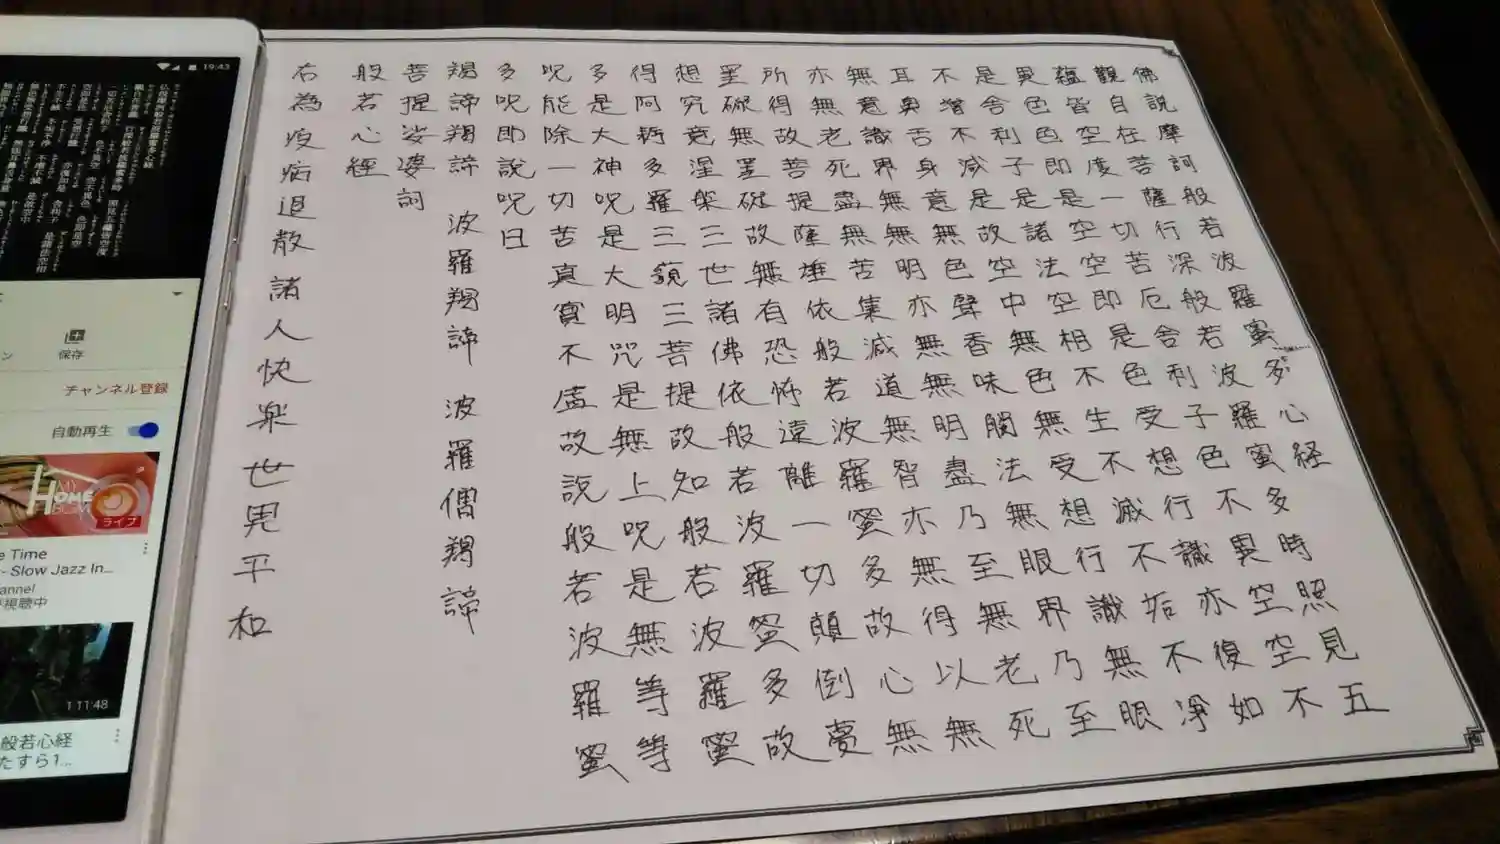 佛説摩訶般若波羅蜜多心経
觀自在菩薩行深般若波羅蜜多時照見五
蘊皆空度一切苦厄舍利子色不異空空不
異色色即是空空即是色受想行識亦復如
是舍利子是諸法空相不生不滅不垢不淨
不増不減是故空中無色無受想行識無眼
耳鼻舌身意無色聲香味觸法無眼界乃至
無意識界無無明亦無無明盡乃至無老死
亦無老死盡無苦集滅道無智亦無得以無
所得故菩提薩埵依般若波羅蜜多故心無
罣礙無罣礙故無有恐怖遠離一切顛倒夢
想究竟涅槃三世諸佛依般若波羅蜜多故
得阿耨多羅三藐三菩提故知般若波羅蜜
多是大神呪是大明呪是無上呪是無等等
呪能除一切苦真實不虚故説般若波羅蜜
多呪即説呪曰
羯諦羯諦 波羅羯諦 波羅僧羯諦
菩提娑婆訶
般若心經
右為疫病退散諸人快楽世界平和
19:43
保存
チャンネル登録
自動再生
MY HOME
ライブ
e Time
- Slow Jazz In...
annel
視聴中
1:11:48
般若心経
たすら1...